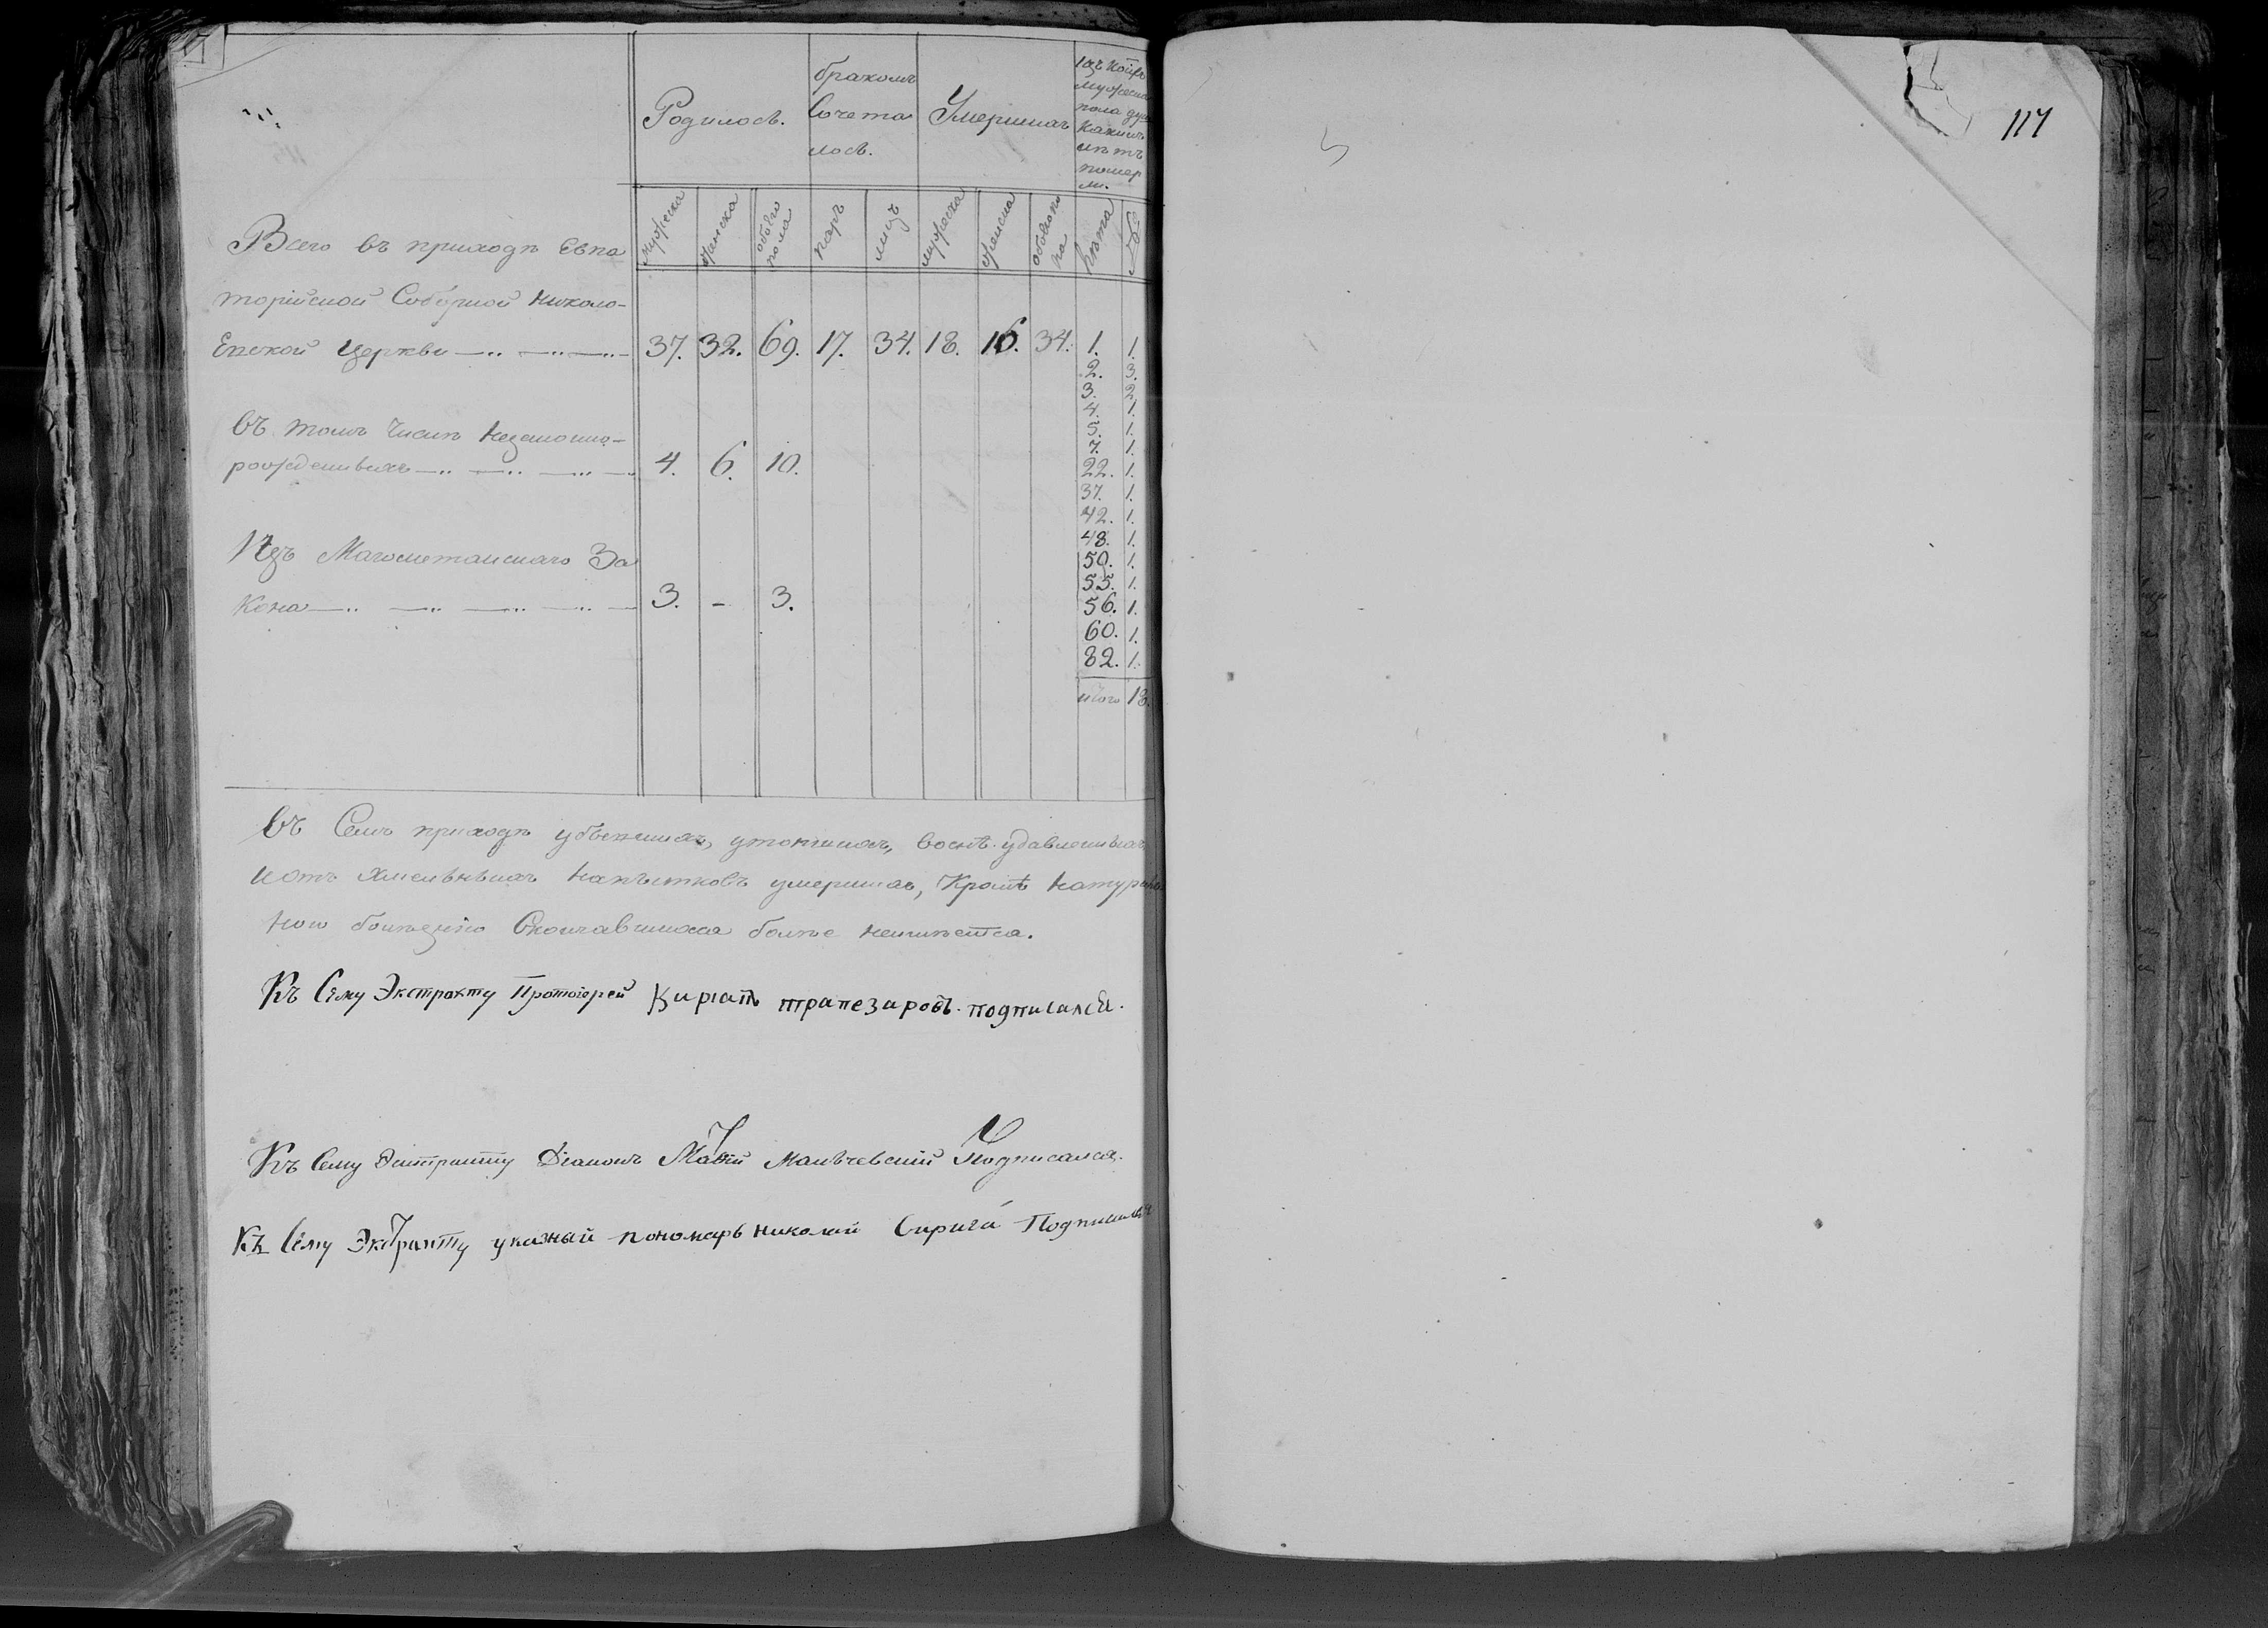 117
Родилось.
бракомъ
Сочета
лось.
Умершихъ
Изъ коихъ
мужеска
пола душъ
какихъ
лѣтъ
помер
ли.
мужеска
женска
обоего пола
паръ
лицъ
мужеска
женска
обоего по
ла
лѣта
Всего въ приходѣ Евпа
торійской Соборной Николо-
Евской Церкви 37. 32. 69. 17. 34. 18. 16. 34. 1. 1.
2. 3.
3. 2
4. 1.
5. 1.
7. 1.
22. 1.
37. 1.
42. 1.
48. 1.
50. 1.
55. 1.
56. 1.
60. 1.
82. 1.
итого 18.
въ томъ Числѣ незаконно-
рожденныхъ 4. 6. 10.
Изъ Магометанскаго За
кона 3. - 3.
Въ Семъ приходѣ убьенныхъ, утопшихъ, удавленныхъ
иотъ хмельныхъ напитковъ умершихъ, Кромѣ натураль
ною болѣзнію Скончавшихся болѣе неимѣется.
Къ Сему Экстракту Протоіерей Киріакъ трапезаровъ подписался.
Къ Сему Экстракту Діаконъ Подписался.
Къ Сему Экстракту указный пономарь николай Сирига